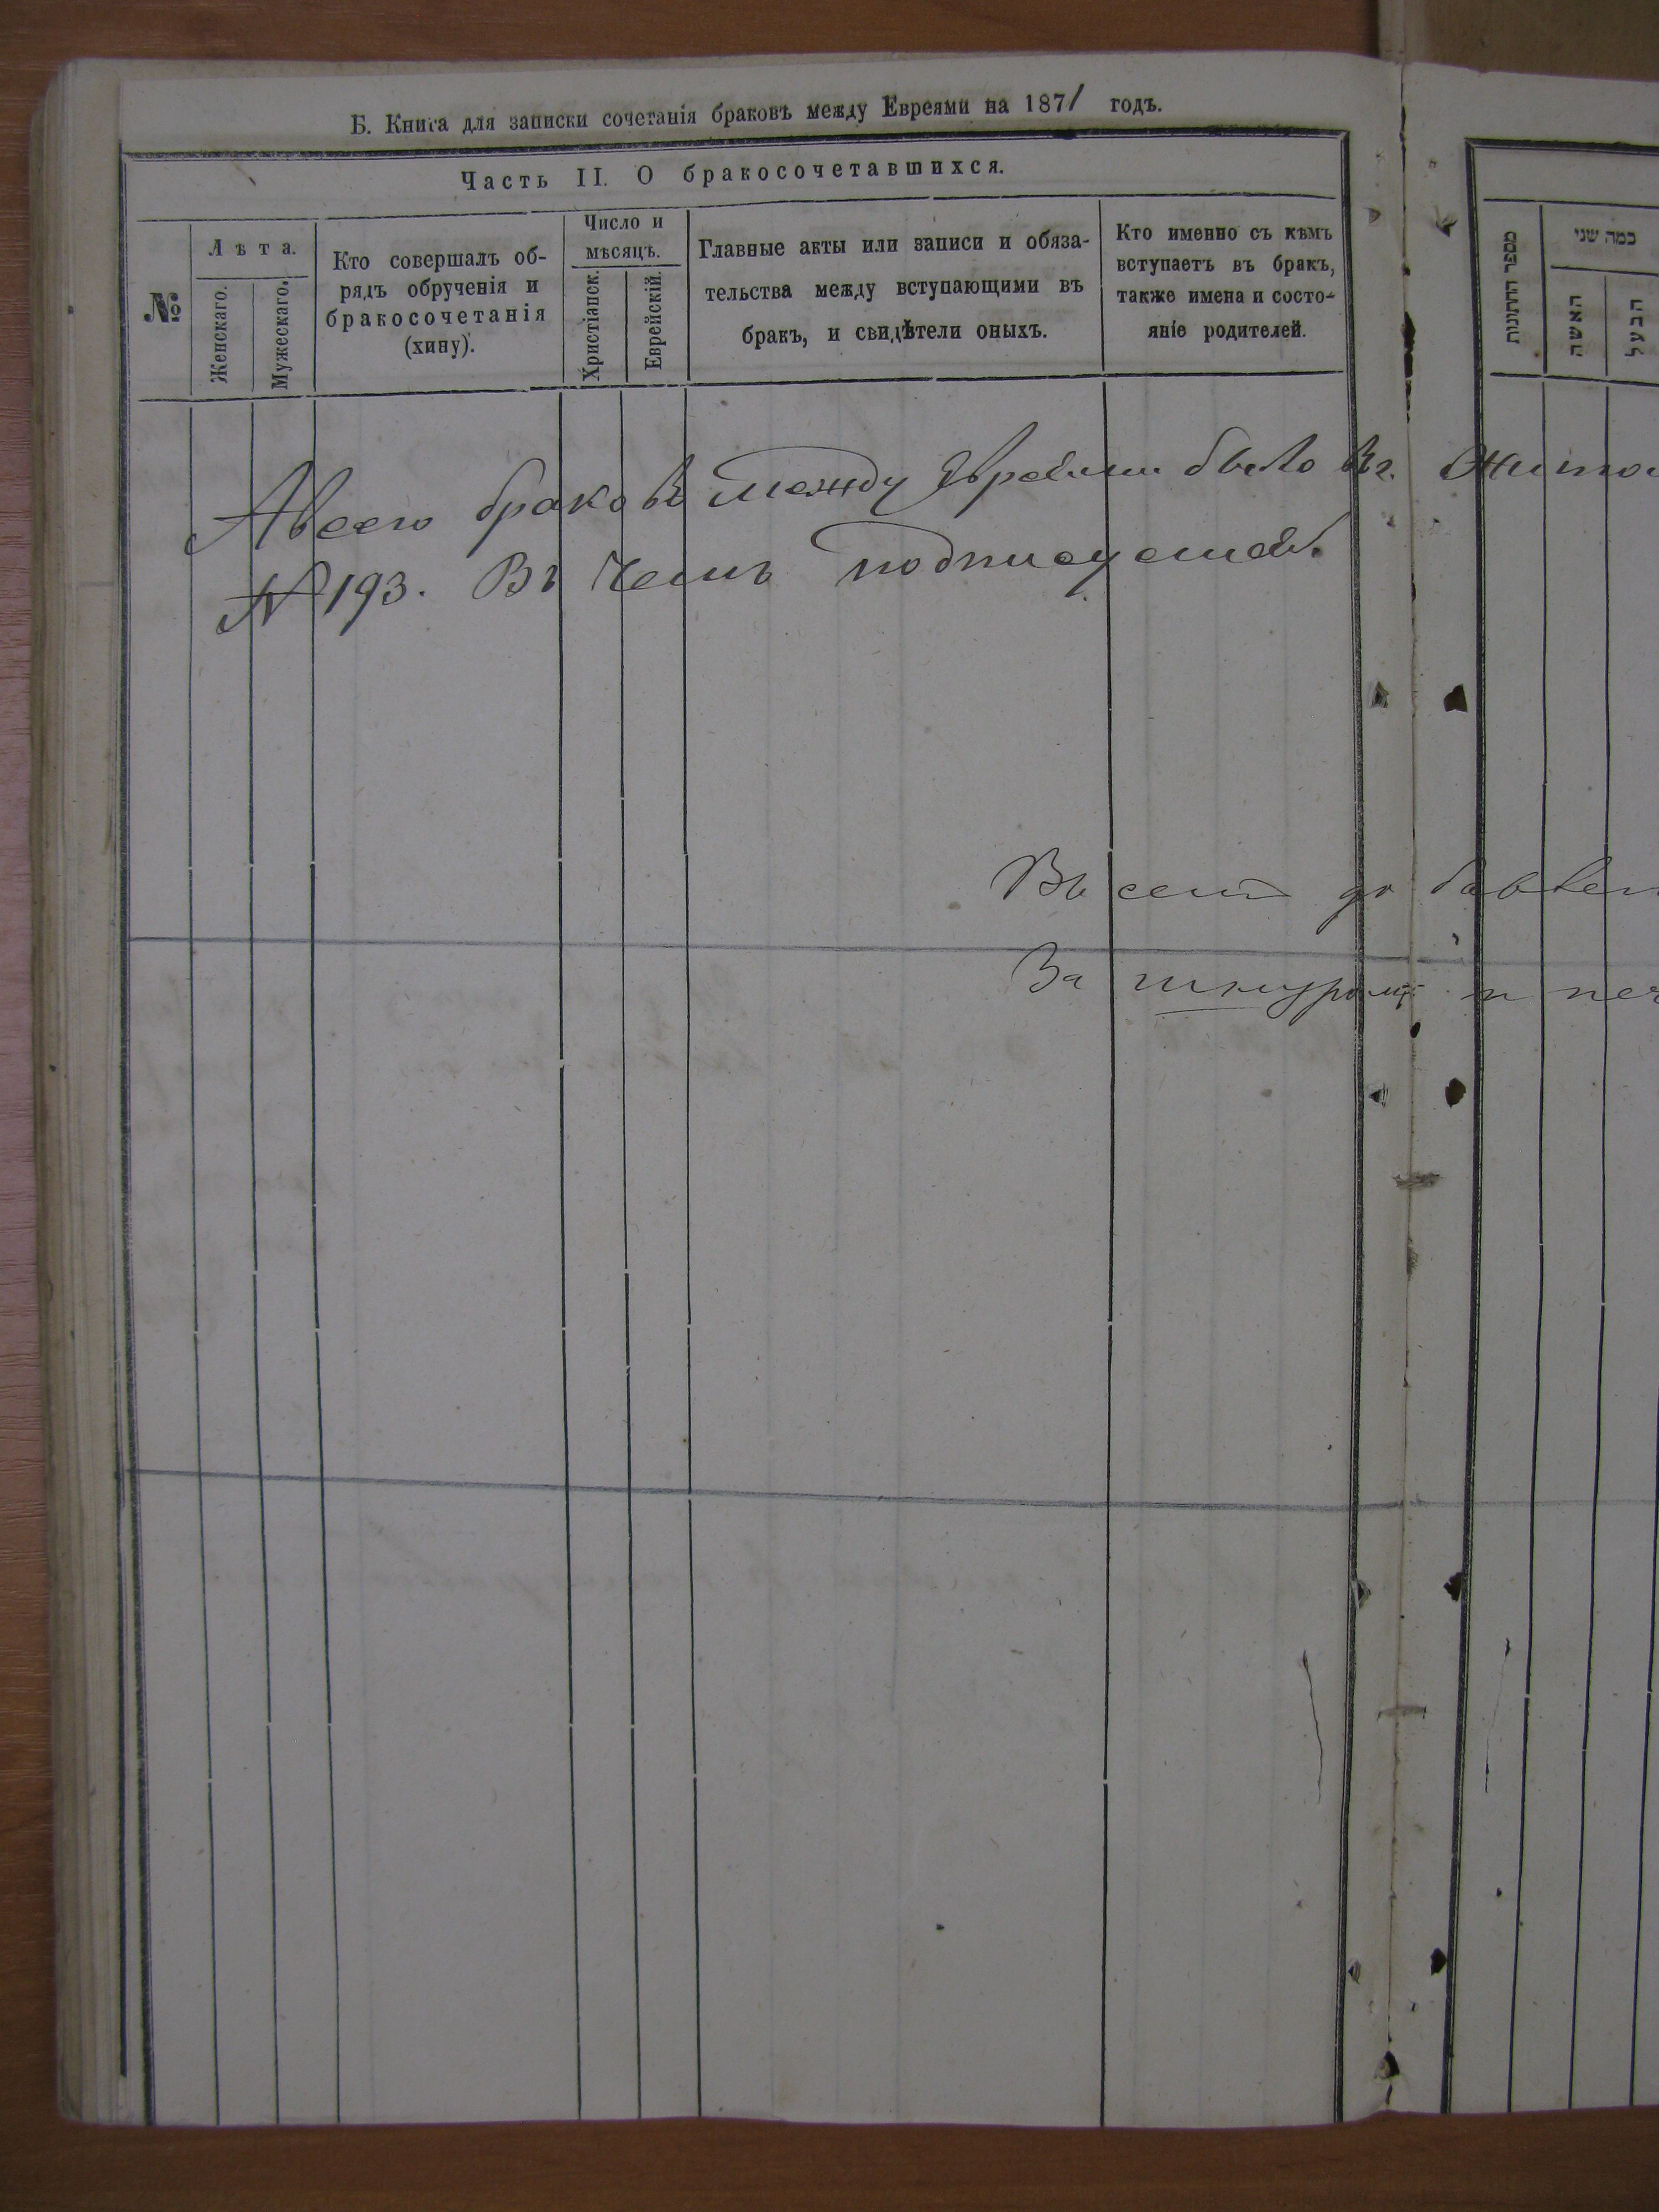 Б. Книга для записки сочетанія браковъ между Евреями на 1871 годъ.
Часть II. О бракосочетавшихся.
№
Лѣта.
Женскаго.
Мужескаго.
Кто совершалъ об-
рядъ обрученія и
бракосочетанія
(хипу).
Число и
мѣсяцъ.
Христіанск.
Еврейскій.
Главные акты или записи и обяза-
тельства между вступающими въ
бракъ, и свидѣтели оныхъ.
Кто именно съ кѣмъ
вступаетъ въ бракъ,
также имена и состо-
яніе родителей.
מספר החתונות
כמה שני
האשה
הבעל
А всего браковъ между Евреями было въ г. Жито
№ 193. Въ чемъ подписуемся.
Въ сей
За шнуромъ и печ